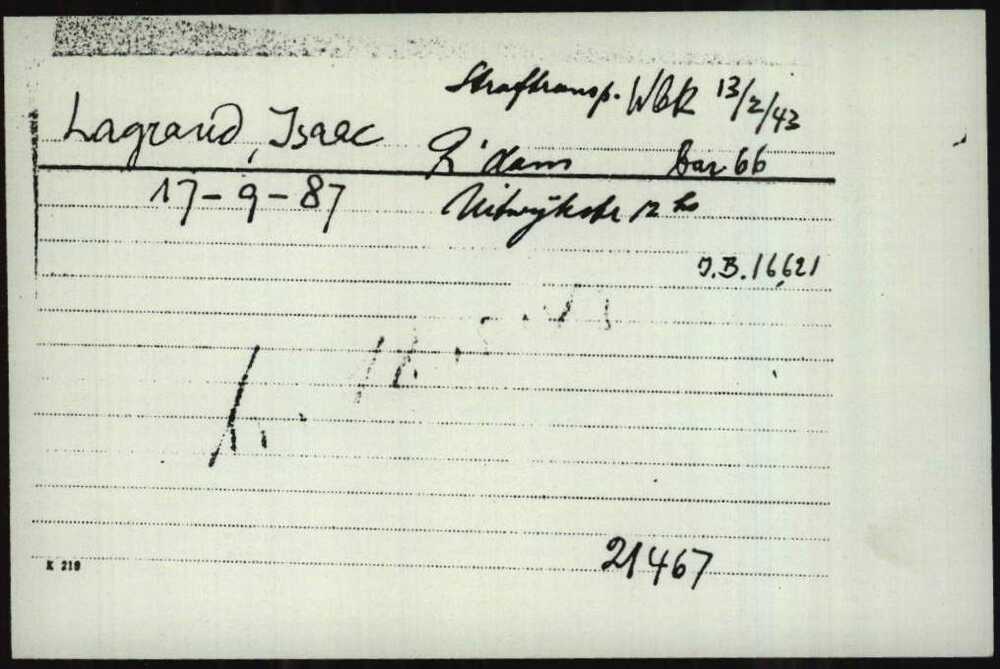 Straftransp. WBK 13/2/43
Lagrand, Isaac
R'dam bar 66
17-9-87
12 hs
J.B. 16621
21467
K 219